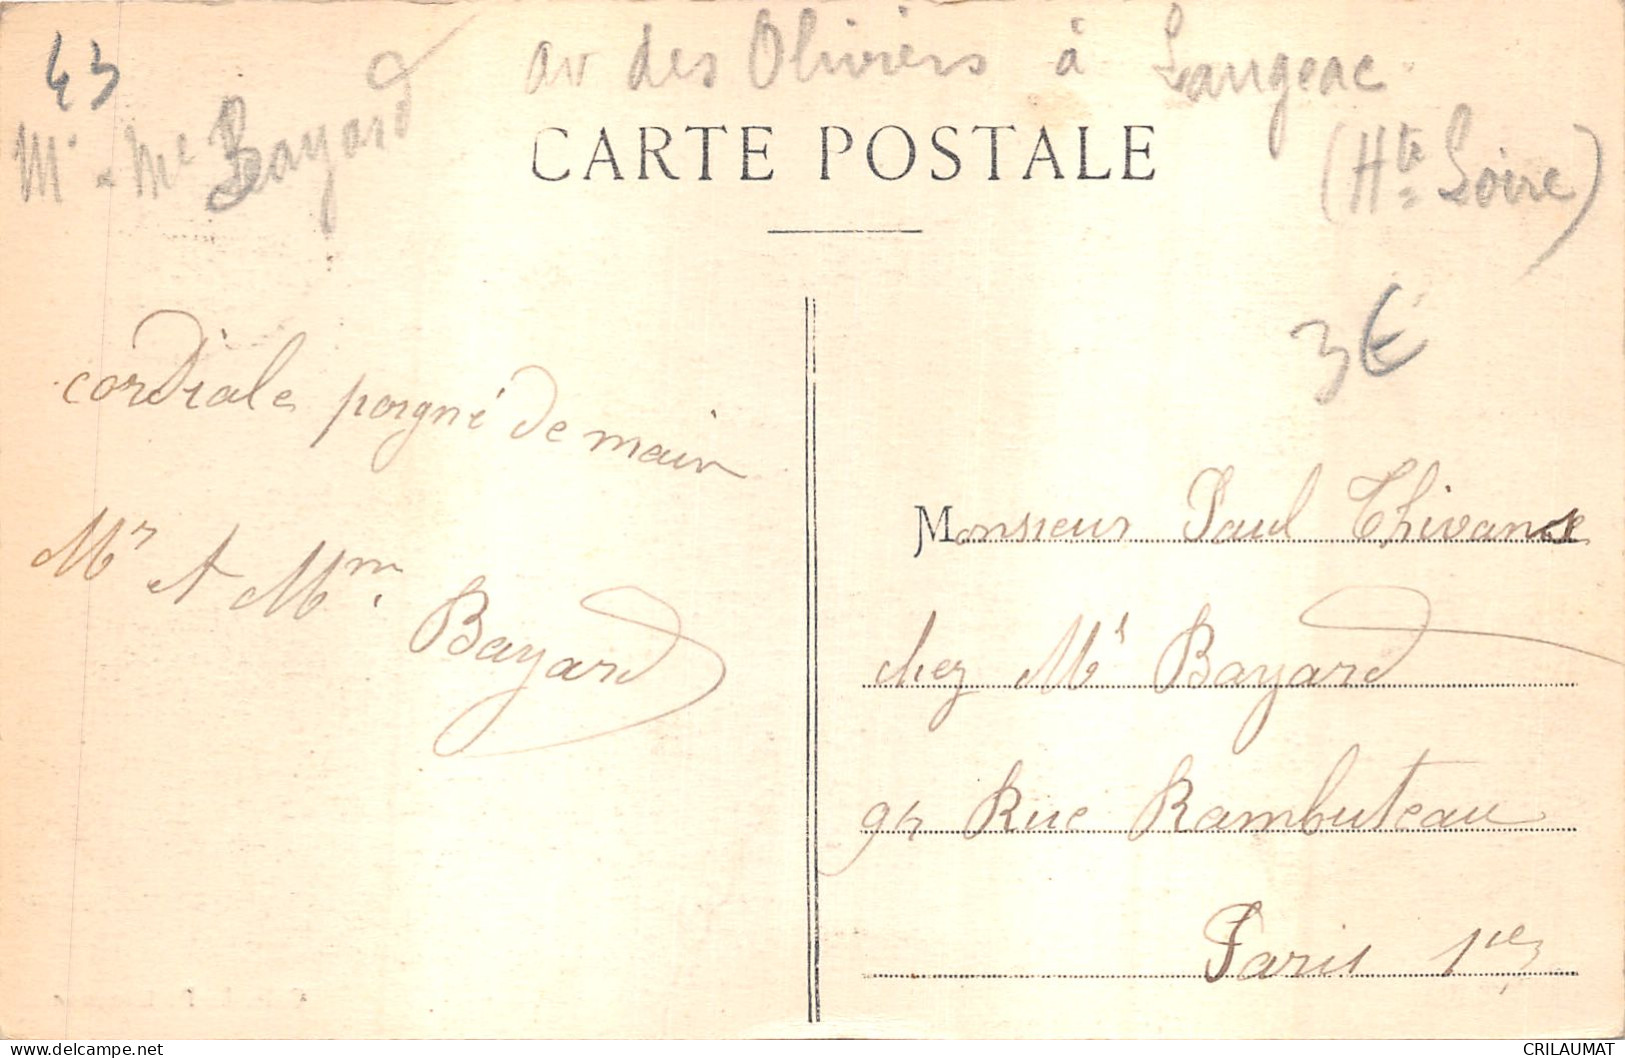 43
av des Oliviers à Langeac
Mr & Me Bayard
(Hte Loire)
CARTE POSTALE
3€
cordiale poigné de main
Mr et Mm Bayard
Monsieur Paul
chez Mr Bayard
Rue Rambuteau
Paris 1er
CRILAUMAT